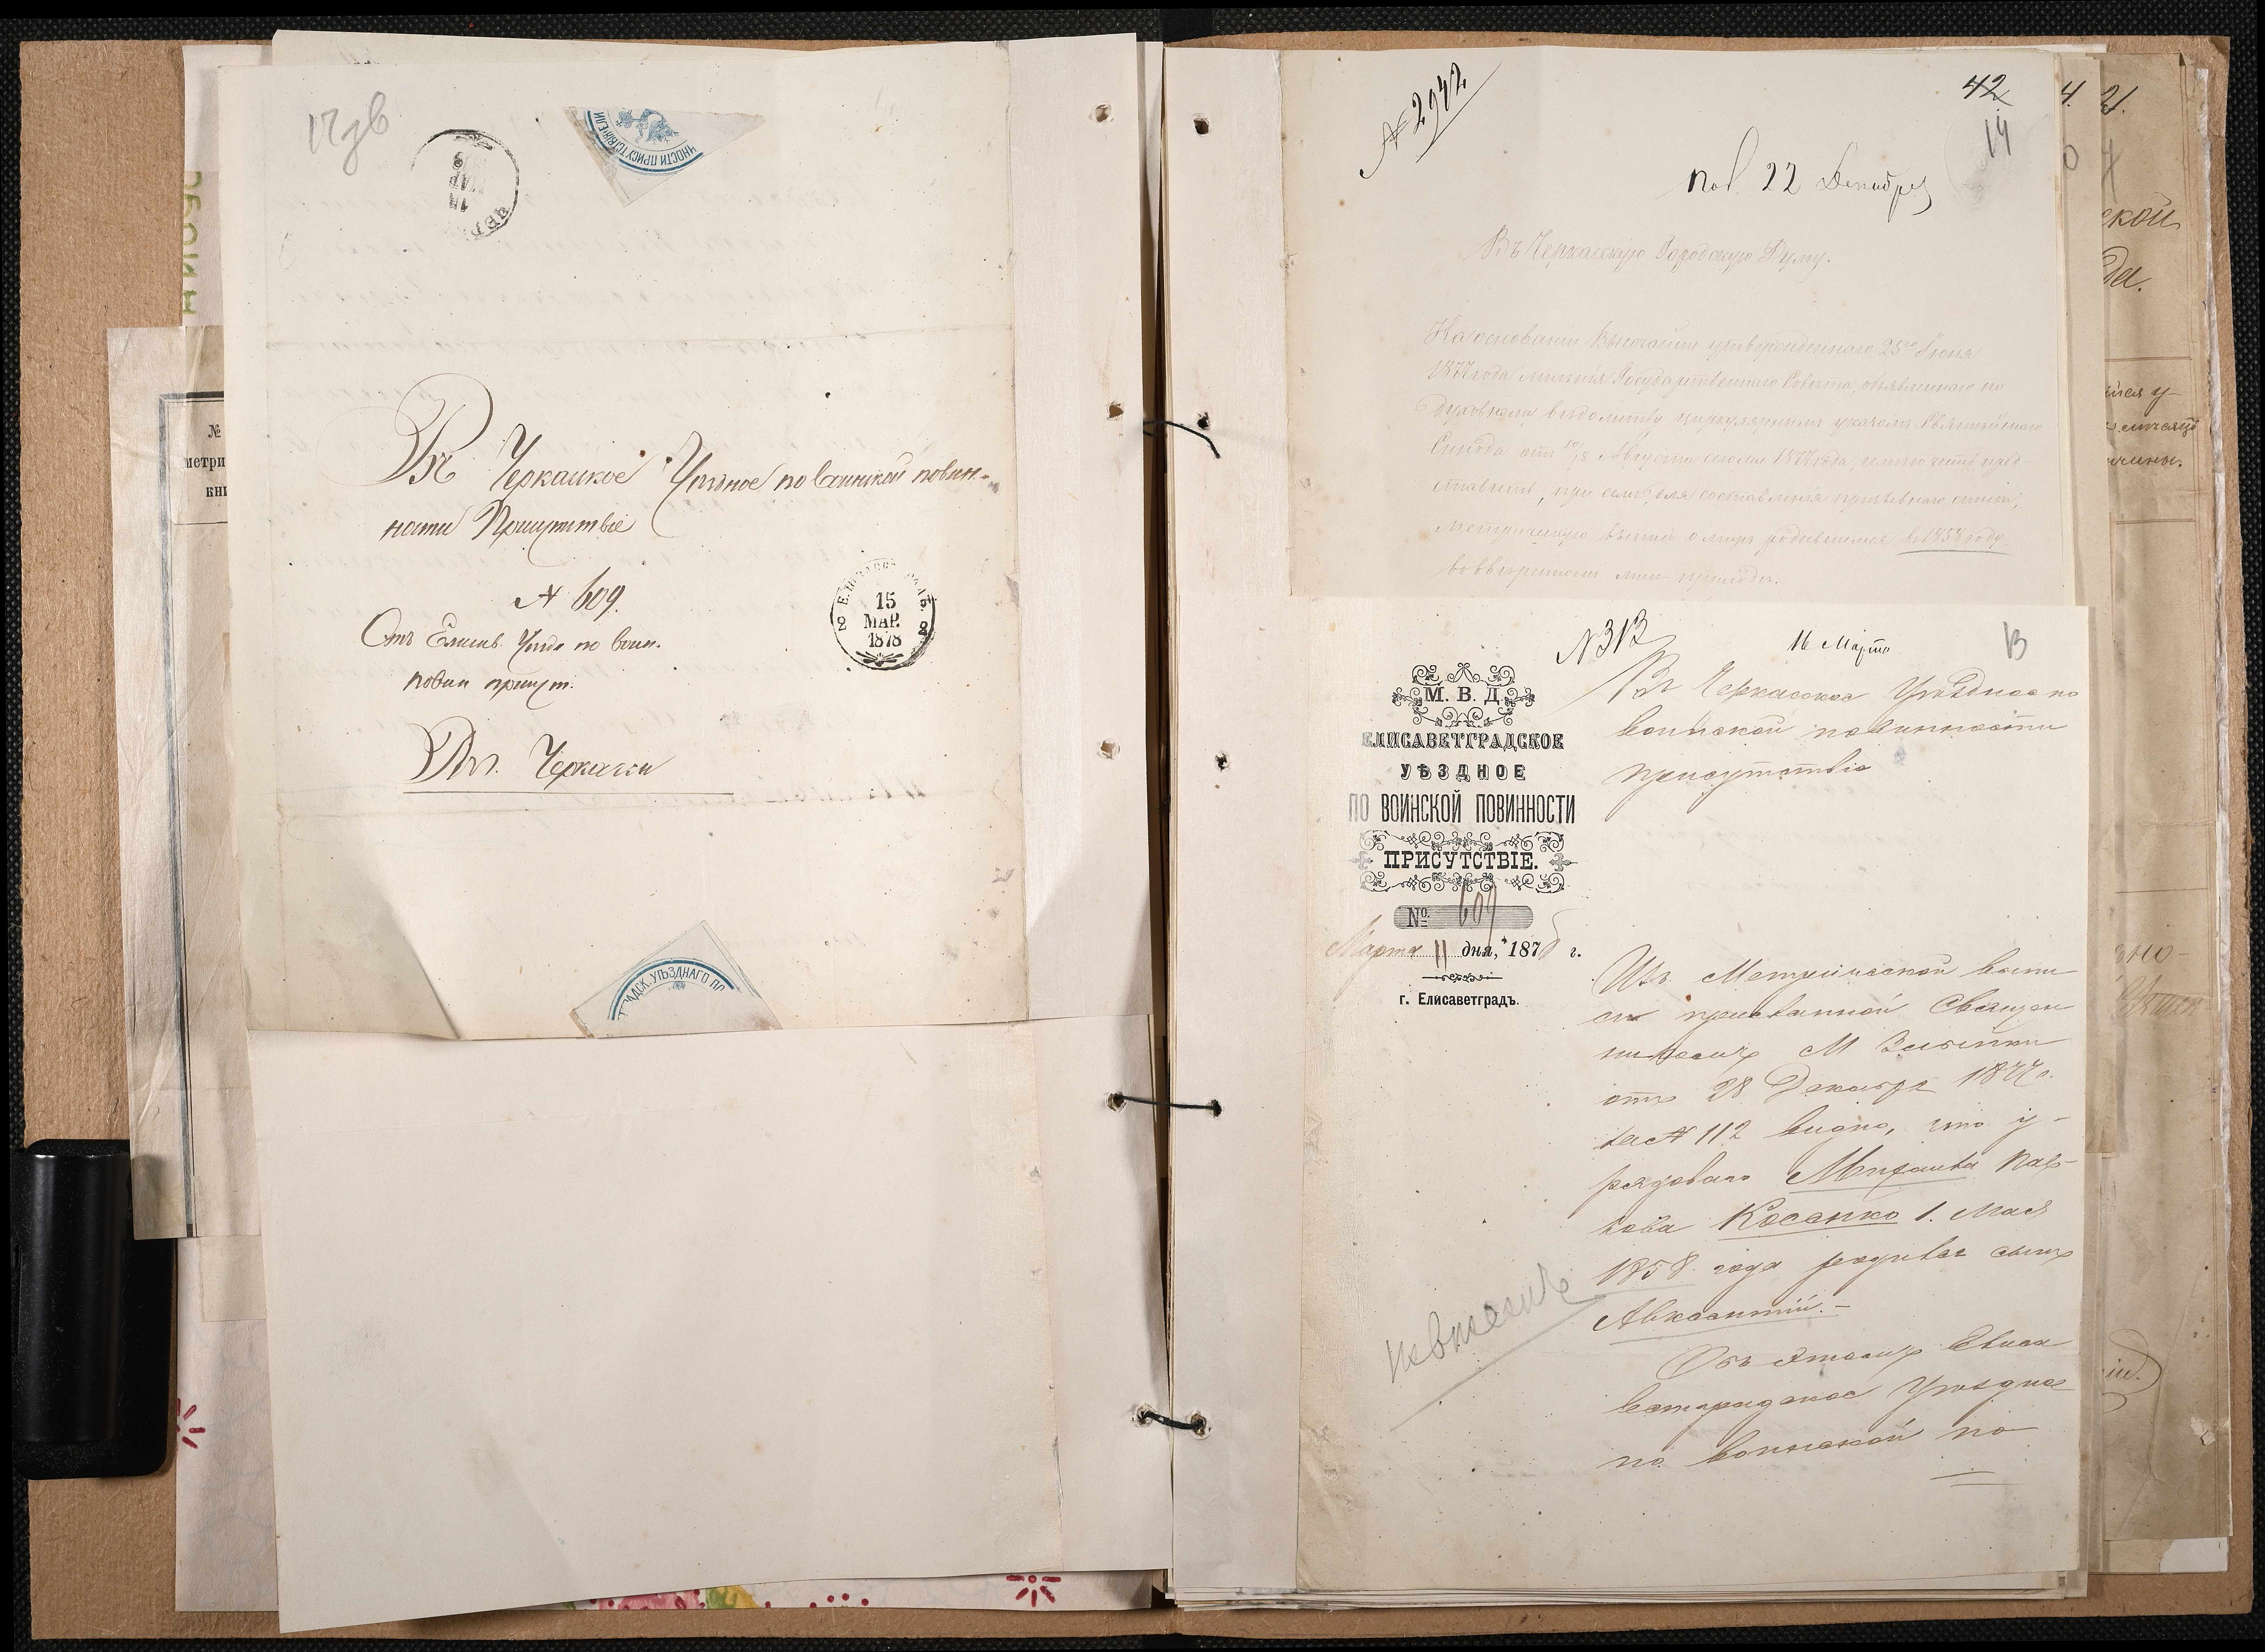 17 зв
ЧНОСТИ ПРИСУТСТВІЯ ЕЛИ
Въ Черкаское Уѣздное по воинской повин-
ности Присутствіе
№ 609.
Отъ Елисав. Уѣзд. по воин.
повин присут.
ЕЛИСАВЕТГРАДЪ
15
2 МАР. 2
1878
Въ г. Черкассы
ГРАДСК. УѢЗДНАГО ПО
№
метри
кни
№ 2942
42
14
пол. 22 Декабря
Въ Черкасскую Городскую Думу.
На основаніи Высочайше утвержденнаго 25го Іюня
1877 года мнѣнія Государственнаго Совѣта, объявленнаго по
Духовному вѣдомству циркулярнымъ указомъ Святѣйшаго
Синода отъ 10/18 Августа сего же 1877 года, имѣю честь пред
ставить, при семъ, для составленія призывнаго списка,
метрическую выпись о лицахъ родившихся въ 1858 году
приходѣ.
№ 313
16 Марта
13
М. В. Д.
ЕЛИСАВЕТГРАДСКОЕ
УѢЗДНОЕ
ПО ВОИНСКОЙ ПОВИННОСТИ
ПРИСУТСТВІЕ.
№ 609
Марта 11 дня, 1878 г.
г. Елисаветградъ.
Въ Черкасское Уѣздное по
воинской повинности
присутствіе
Изъ Метрической выпи
си присланной Священ
никомъ М Злынки
отъ 28 Декабря 1877 г.
за № 112 видно, что у
рядоваго Михаила Пав-
лова Косенко 1. Мая
1858 года родился сынъ
Авксентій. –
Объ этомъ Елиса
ветградское Уѣздное
по воинской по
ской
да.